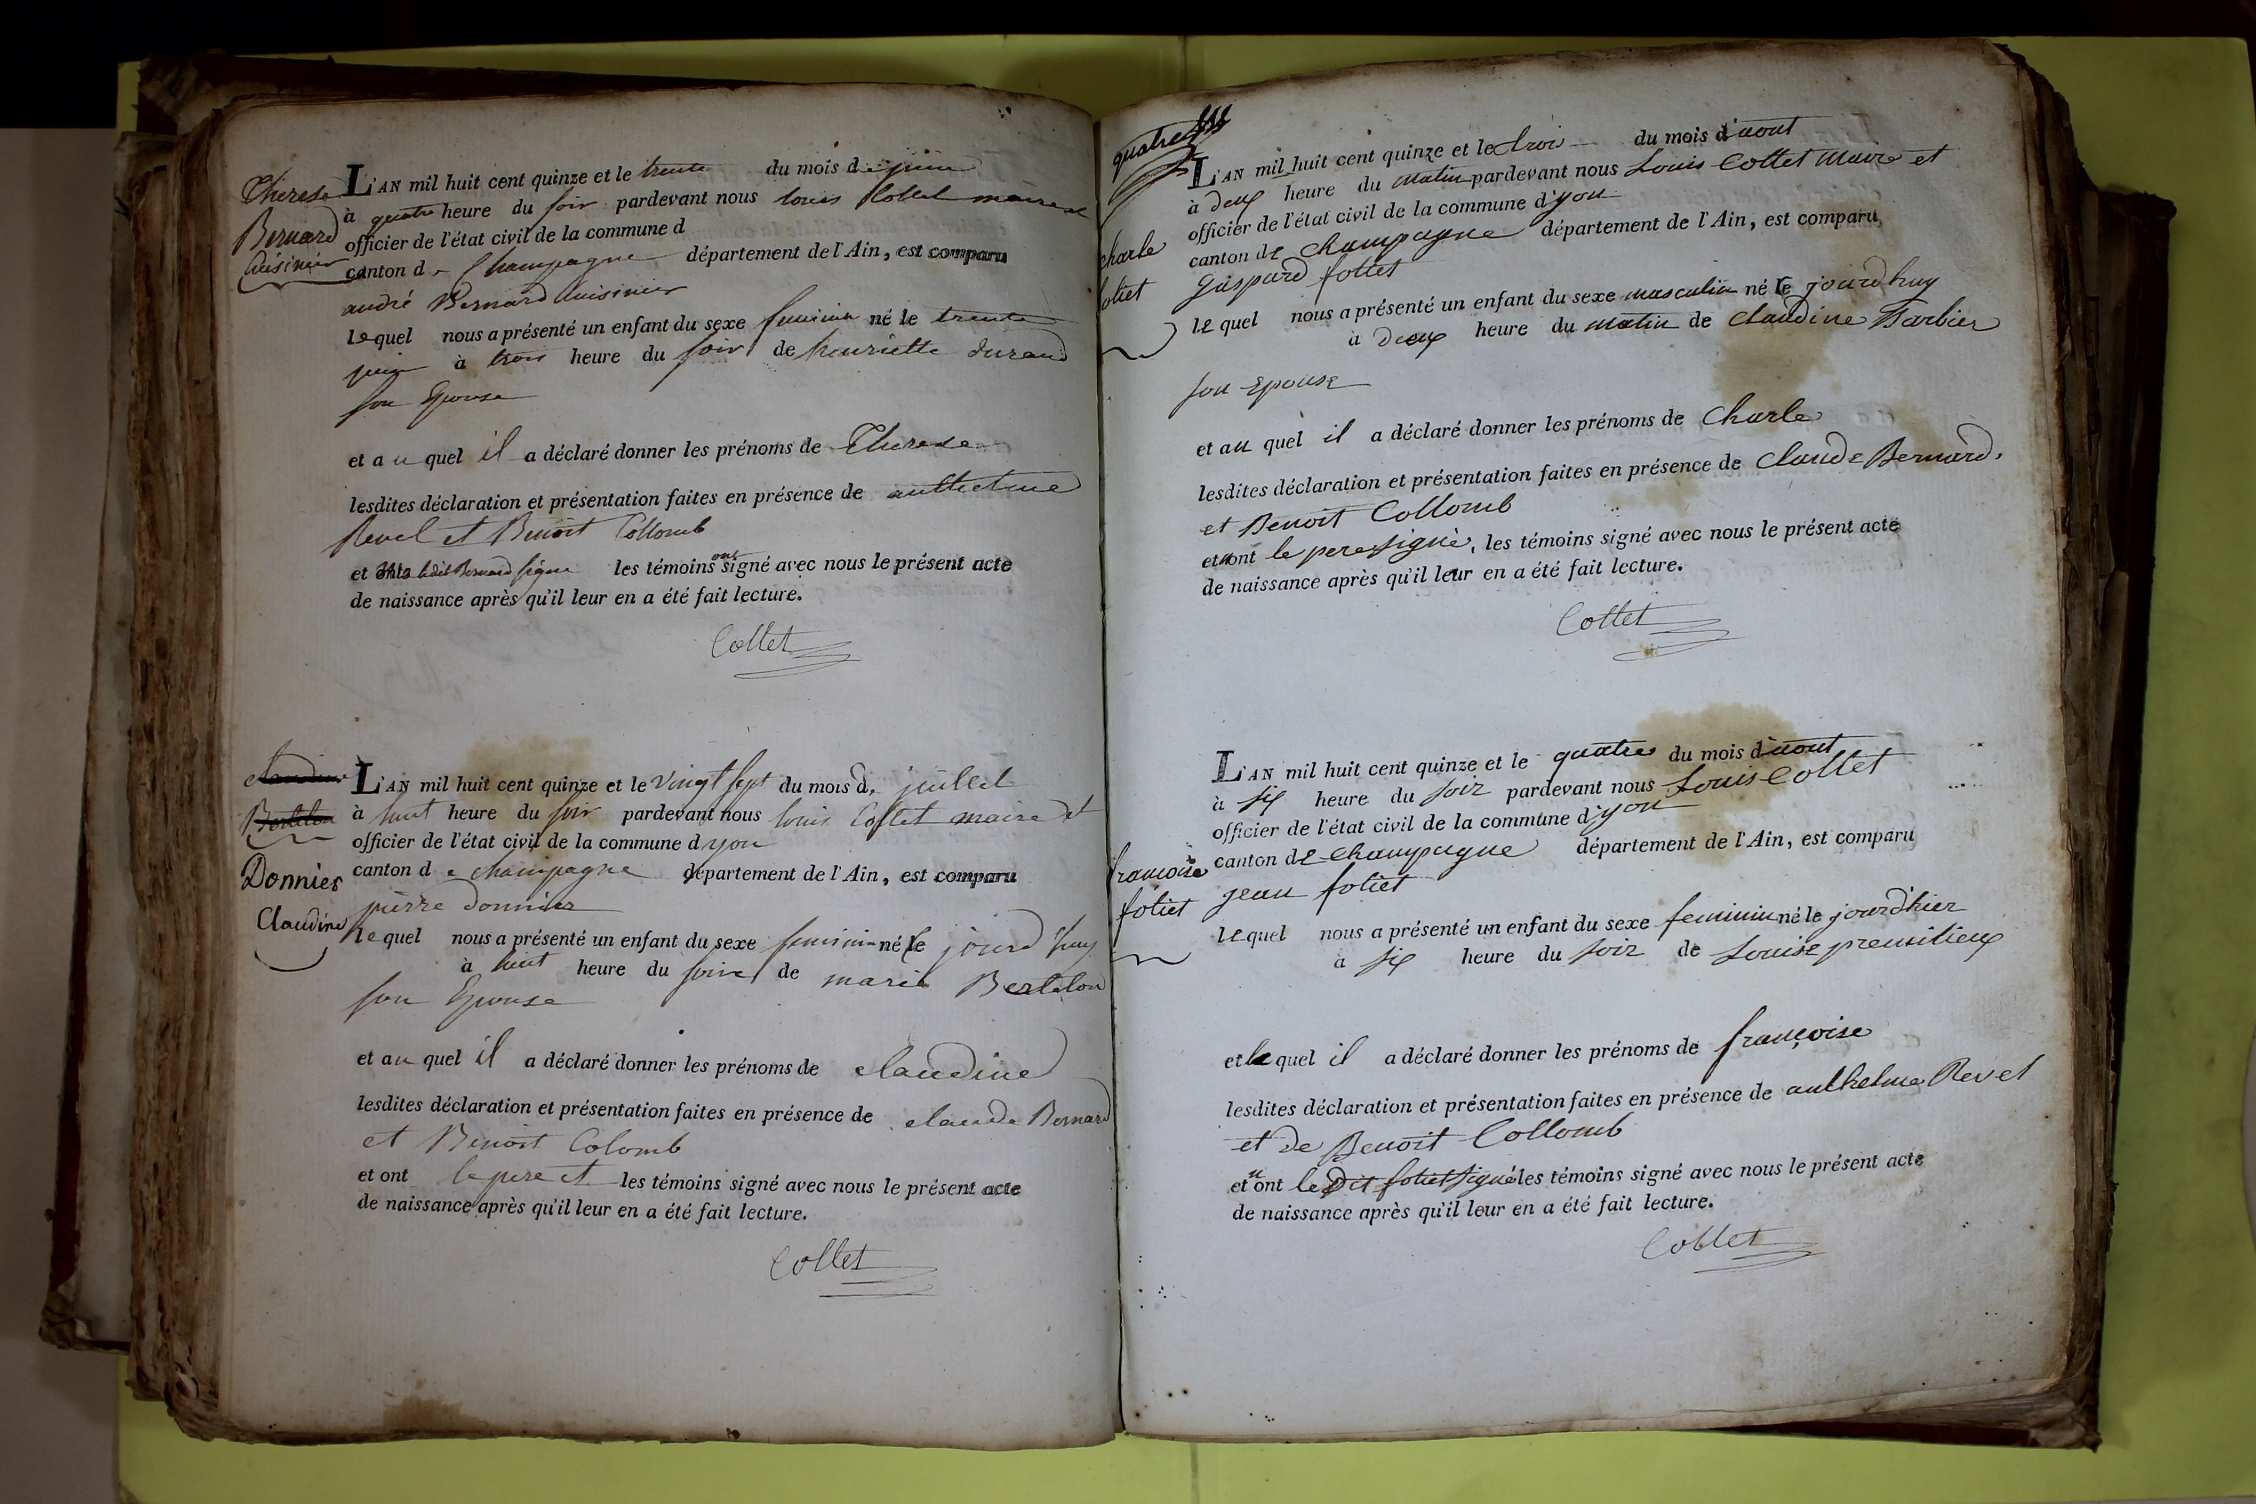 Therese
Bernard
Cuisinier
L'AN mil huit cent quinze et le trente du mois de juin
à quatre heure du soir pardevant nous louis Collet maire et
officier de l'état civil de la commune d
canton de Champagne département de l'Ain, est comparu
andré Bernard Cuisinier
Lequel nous a présenté un enfant du sexe feminin né le trente
juin à trois heure du soir de henriette durand
son Epouse
et au quel il a déclaré donner les prénoms de Therese
lesdites déclaration et présentation faites en présence de anthelme
Revel et Benoit Collomb
et ledit Bernard signé les témoins ont signé avec nous le présent acte
de naissance après qu'il leur en a été fait lecture.
Collet
claudine
Bertelon
Donnier
Claudine
L'AN mil huit cent quinze et le vingt sept du mois de juillet
à huit heure du soir pardevant nous louis Collet maire et
officier de l'état civil de la commune d yon
canton de champagne département de l'Ain, est comparu
pierre donnier
lequel nous a présenté un enfant du sexe feminin né le jourd'huy
à huit heure du soir de marie Bertelon
son Epouse
et au quel il a déclaré donner les prénoms de claudine
lesdites déclaration et présentation faites en présence de claude Bernard
et Benoit Colomb
et ont le pere et les témoins signé avec nous le présent acte
de naissance après qu'il leur en a été fait lecture.
Collet
quatre
charle
foliet
L'AN mil huit cent quinze et le trois du mois d'aout
à deux heure du matin pardevant nous Louis Collet Maire et
officier de l'état civil de la commune d'yon
canton de champagne département de l'Ain, est comparu
Gaspard foliet
lequel nous a présenté un enfant du sexe masculin né le jourd'huy
à deux heure du matin de claudine Barbier
son Epouse
et au quel il a déclaré donner les prénoms de Charle
lesdites déclaration et présentation faites en présence de claude Bernard,
et Benoit Collomb
et nont le pere signé, les témoins signé avec nous le présent acte
de naissance après qu'il leur en a été fait lecture.
Collet
francoise
foliet
L'AN mil huit cent quinze et le quatre du mois d'aout
à six heure du soir pardevant nous Louis Collet
officier de l'état civil de la commune d'yon
canton de Champagne département de l'Ain, est comparu
jean foliet
lequel nous a présenté un enfant du sexe feminin né le jourd'hier
à six heure du soir de Louise premilieux
et la quel il a déclaré donner les prénoms de françoise
lesdites déclaration et présentation faites en présence de anthelme Revel
et de Benoit Collomb
et n ont ledit foliet signé les témoins signé avec nous le présent acte
de naissance après qu'il leur en a été fait lecture.
Collet